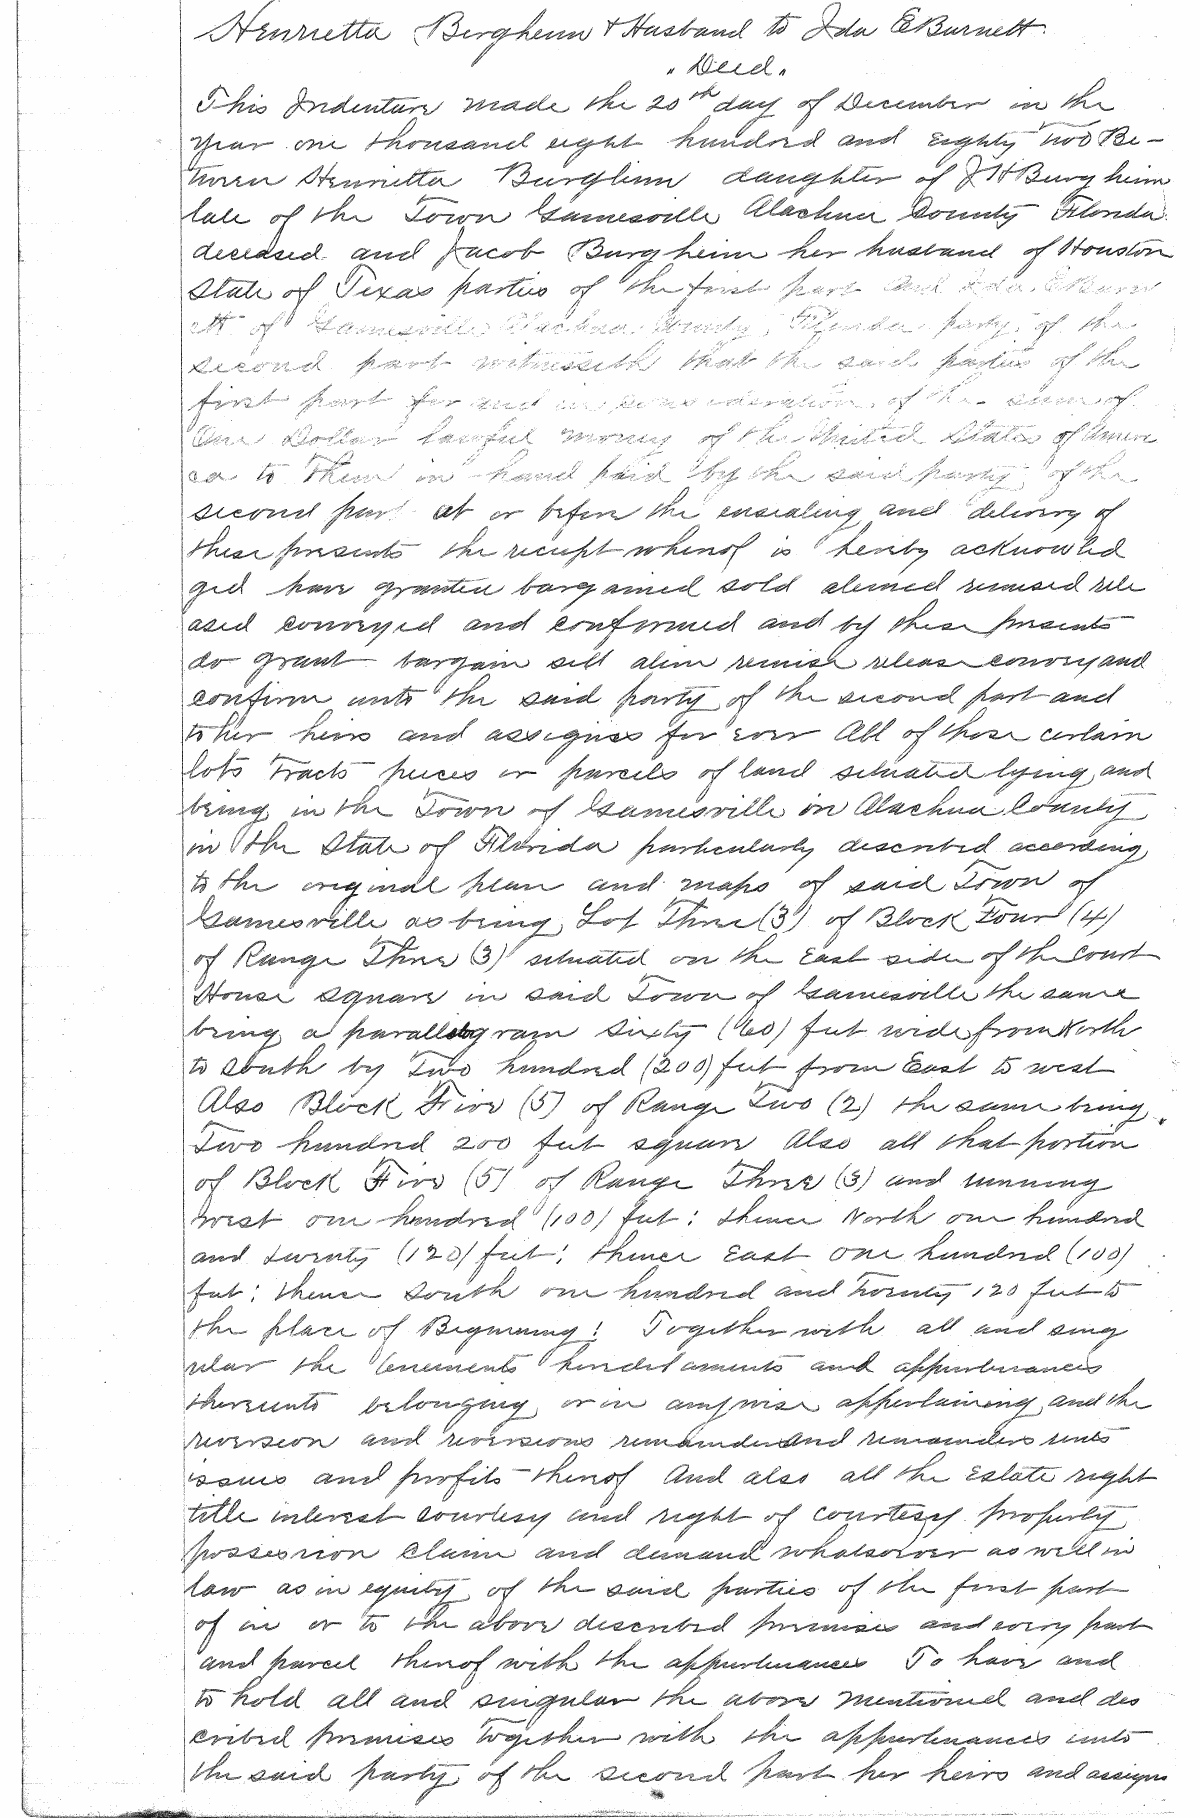 Henrietta Bergheim & Husband to Ida E Burnett.
"Deed"
This Indenture made the 20th day of December in the
year one thousand eight hundred and Eighty Two Be-
tween Henrietta Burgheim daughter of J H Burgheim
late of the Town Gainesville Alachua County Florida
deceased and Jacob Burgheim her husband of Houston
State of Texas parties of the first part and Ida E Burn
ett of Gainesville Alachua County, Florida party of the
second part witnesseth that the said parties of the
first part for and in consideration of the sum of
One Dollar lawful money of the United States of Ameri
ca to Them in hand paid by the said party of the
second part at or before the ensealing and delivery of
these presents the receipt whereof is hereby acknowled
ged have granted bargained sold aliened remised rele
ased conveyed and confirmed and by these presents
do grant bargain sell alien remise release convey and
confirm unto the said party of the second part and
to her heirs and assignes for ever All of those certain
lots tracts pieces or parcels of land situated lying and
being in the Town of Gainesville in Alachua County
in the State of Florida particularly described according
to the original plan and maps of said Town of
Gainesville as being Lot Three (3) of Block Four (4)
of Range Three (3) situated on the East side of the Court
House square in said Town of Gainesville the same
being a parallelogram Sixty (60) feet wide from North
to South by Two hundred (200) feet from East to west
Also Block Five (5) of Range Two (2) the same being
Two hundred 200 feet square Also all that portion
of Block Five (5) of Range Three (3) and running
west one hundred (100) feet: thence North one hundred
and twenty (120) feet; thence East one hundred (100)
feet; thence South one hundred and twenty 120 feet to
the place of Beginning! Together with all and sing
ular the tenements hereditaments and appurtenances
thereunto belonging or in anywise appertaining and the
reversion and reversions remainder and remainders rents
issues and profits thereof And also all the Estate right
title interest courtesy and right of courtesy property
possession claim and demand whatsoever as well in
law as in equity of the said parties of the first part
of in or to the above described premises and every part
and parcel thereof with the appurtenances To have and
to hold all and singular the above mentioned and des
cribed premises Together with the appurtenances unto
the said party of the second part her heirs and assigns